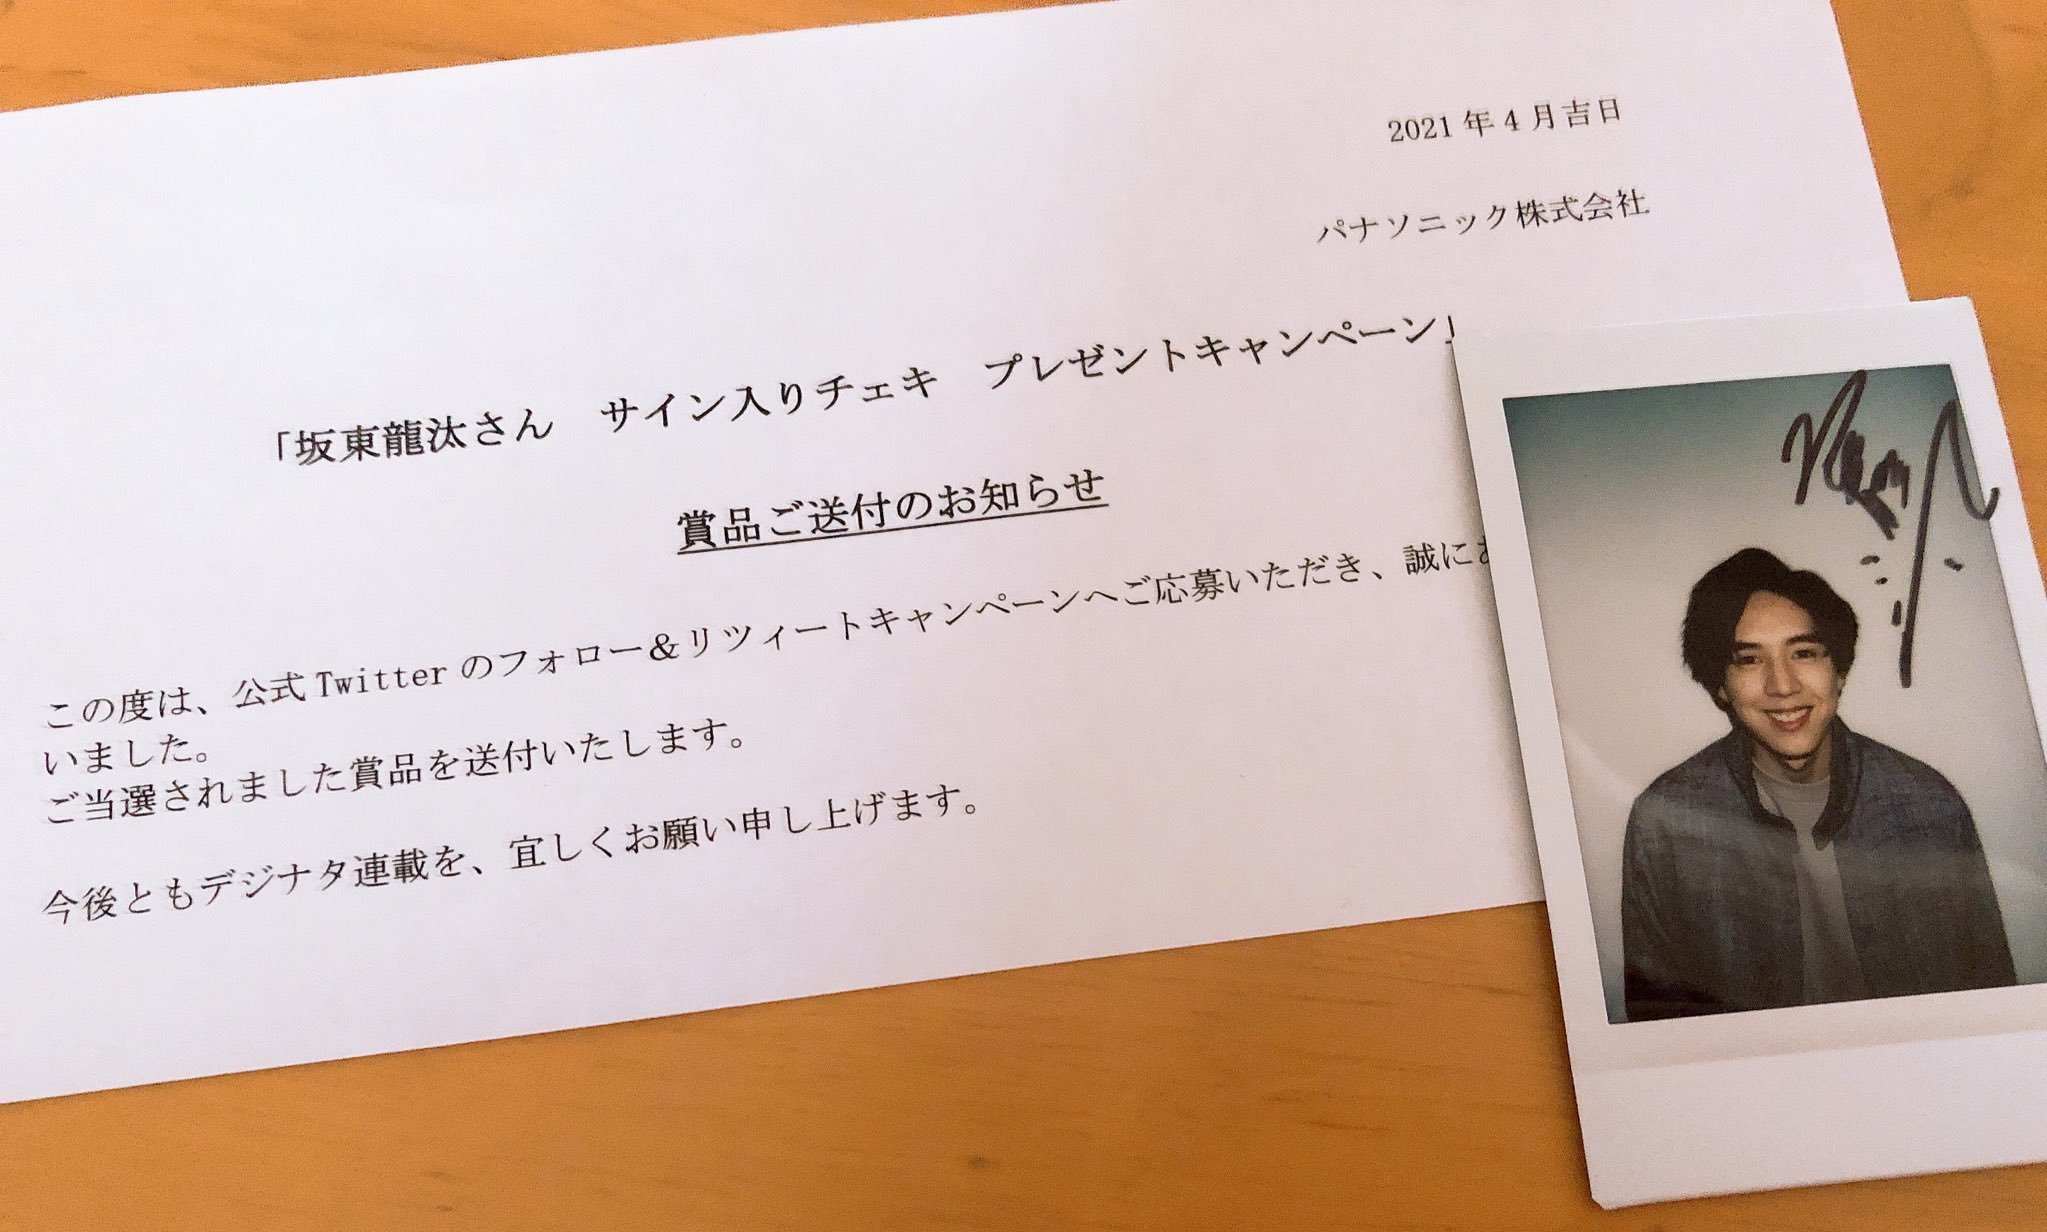 2021年4月吉日
パナソニック株式会社
「坂東龍汰さん　サイン入りチェキ　プレゼントキャンペーン」
賞品ご送付のお知らせ
この度は、公式Twitterのフォロー&リツィートキャンペーンへご応募いただき、誠に
いました。
ご当選されました賞品を送付いたします。
今後ともデジナタ連載を、宜しくお願い申し上げます。